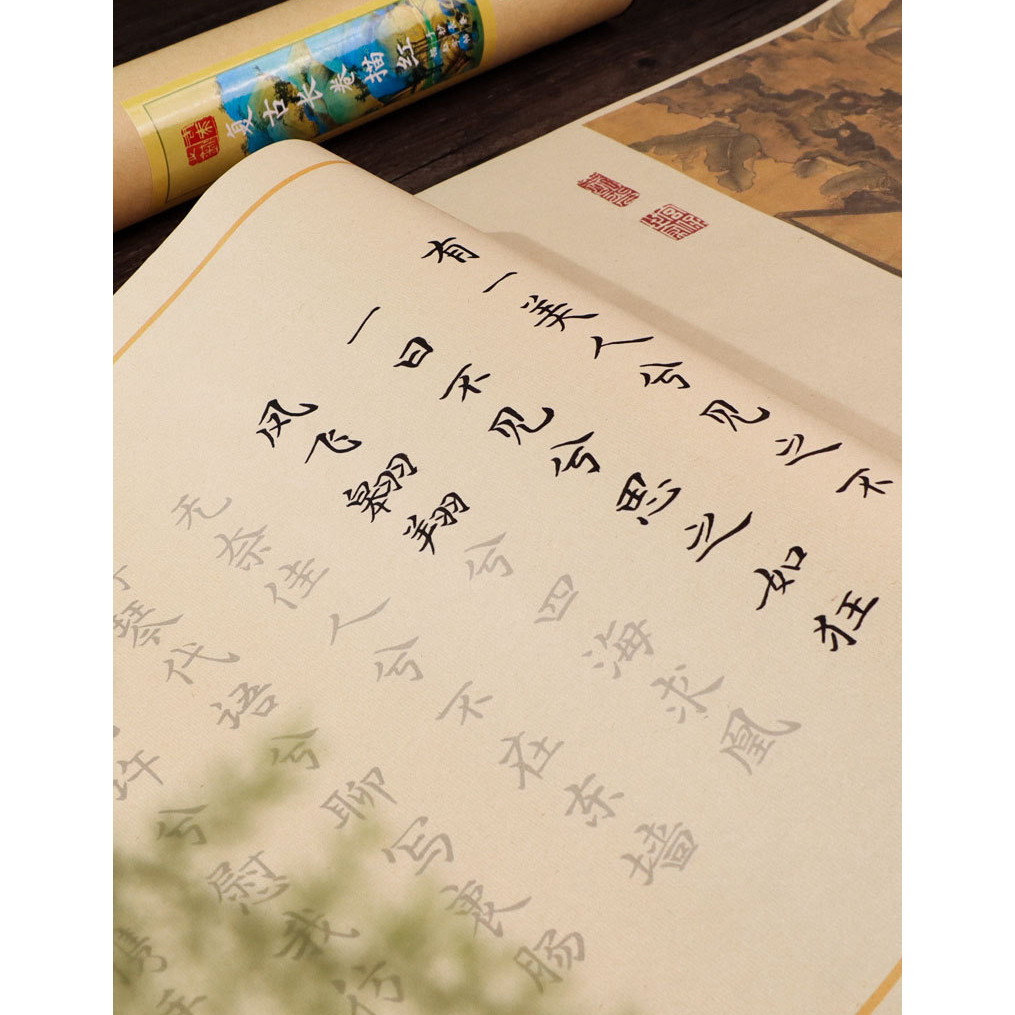 复古长卷描红
有一美人兮见之不
一日不见兮思之如狂
凤飞翱翔兮四海求凰
无奈佳人兮不在东墙
琴代语兮聊写衷肠
许兮慰我彷
携手